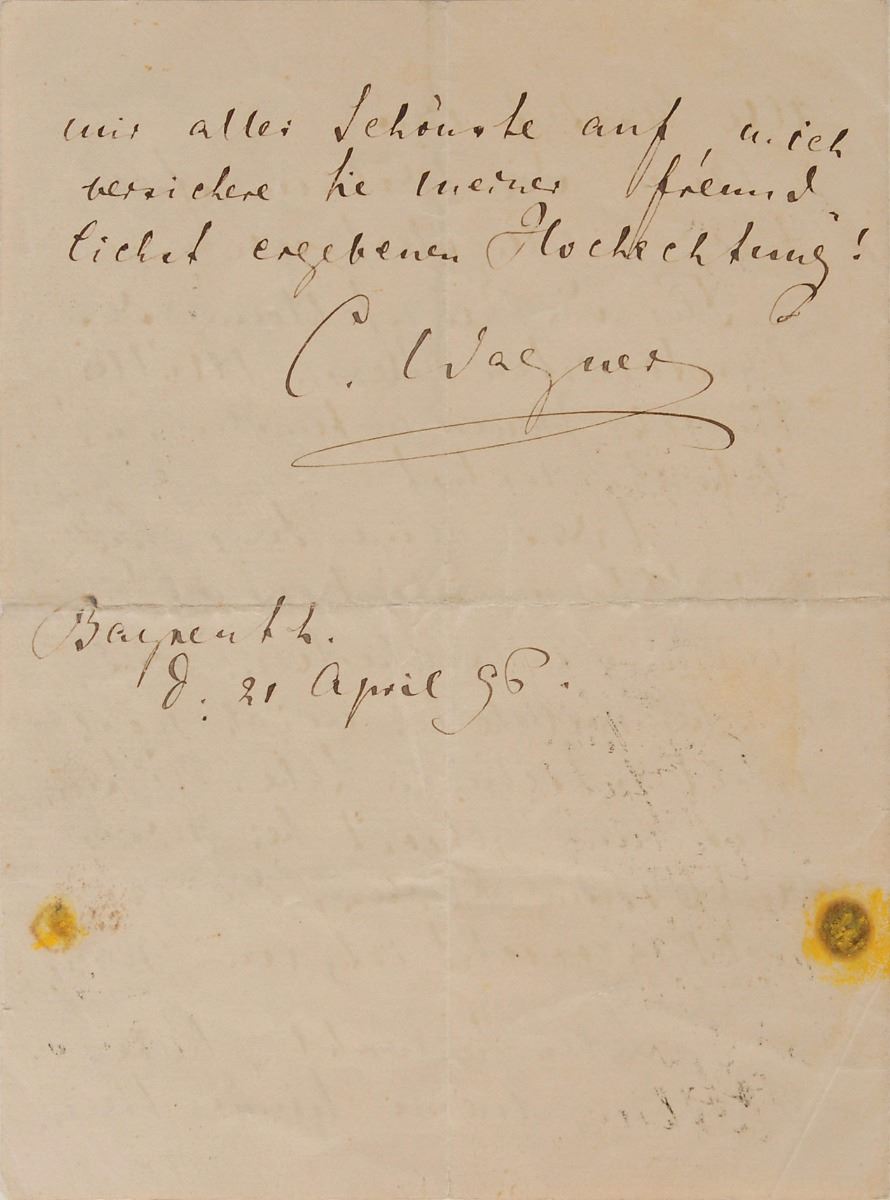 mir aller Schönste auf, mich
versichere Sie meiner freund„
lichst ergebenen Hochechtung!
C. Wagner
Bayreuth.
d. 21 April 96.